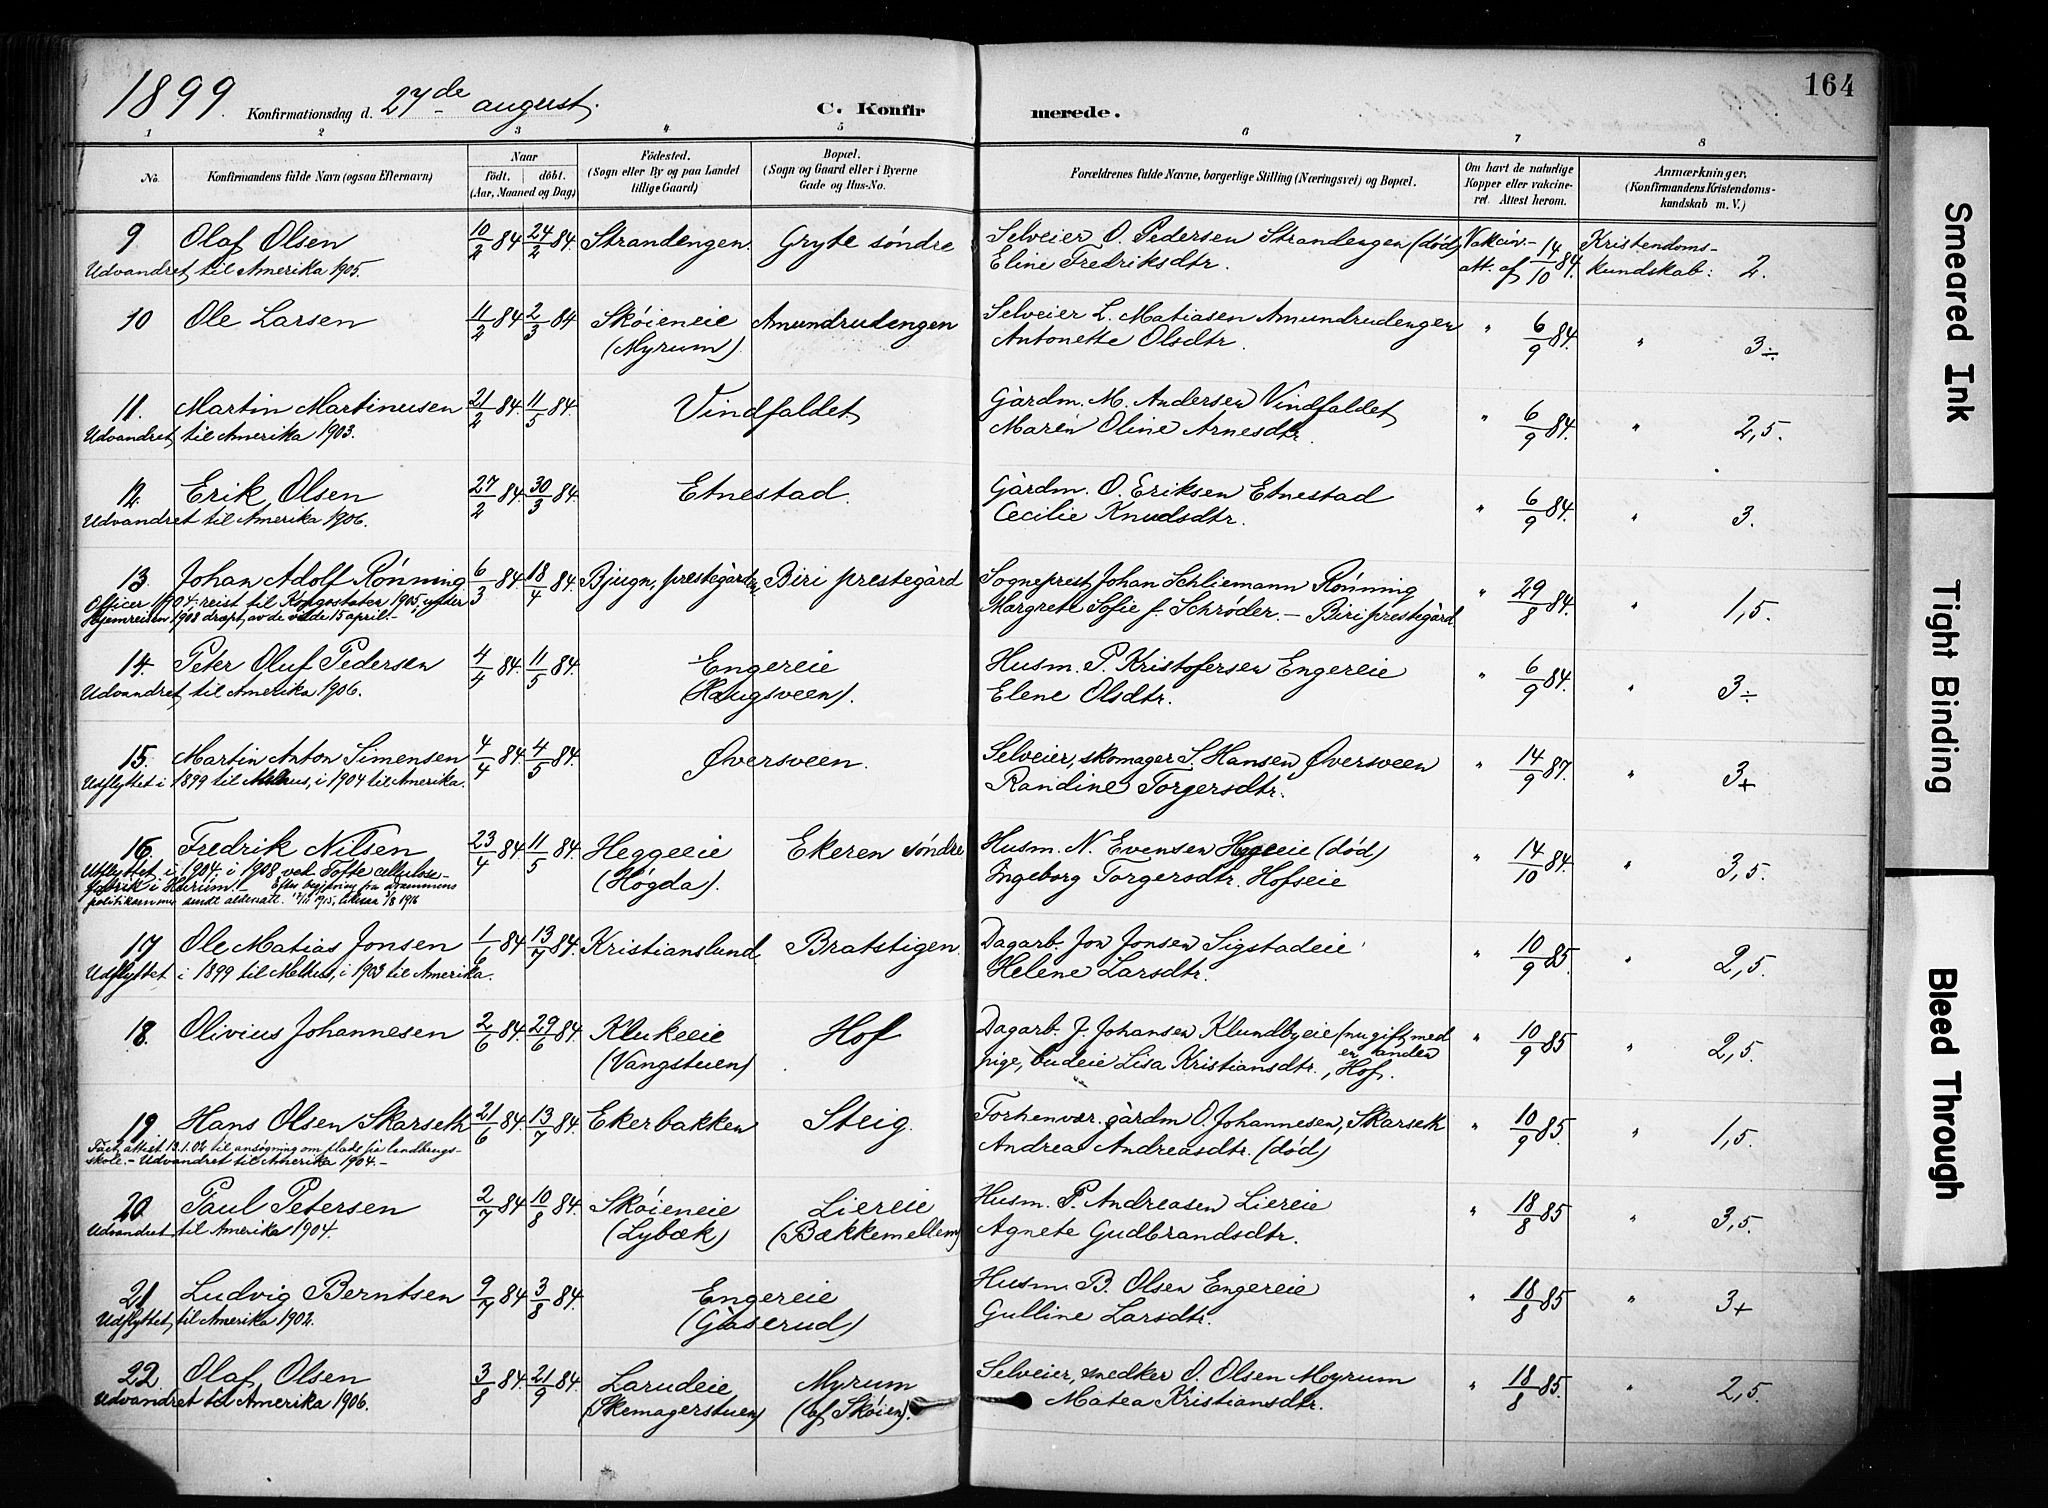 164
1899. Konfirmationsdag d. 27de august. C. Konfirmerede.
1 2 3 4 5 6 7 8
No. Konfirmandens fulde Navn (ogsaa Efternavn) Naar født. døbt. (Aar, Maaned og Dag) Fødested. (Sogn eller By og paa Landet tillige Gaard) Bopæl. (Sogn og Gaard eller i Byerne Gade og Hus-No.) Forældrenes fulde Navne, borgerlige Stilling (Næringsvei) og Bopæl. Om havt de naturlige Kopper eller vakcineret. Attest herom. Anmærkninger. (Konfirmandens Kristendomskundskab m. V.)
9 Olaf Olsen 10/2 84 24/2 84. Strandengen. Gryte søndre Selveier O. Pedersen Strandengen (død) Vakcin.- Kristendoms-
Udvandret til Amerika 1905. Eline Fredriksdtr. att. af 14/10 84. kundskab: 2.
10 Ole Larsen 11/2 84 2/3 84 Skøieneie Amundrudengen Selveier L. Matiasen Amundrudengen " 6/9 84. " 3÷
(Myrum). Antonette Olsdtr.
11. Martin Martinusen 21/2 84. 11/5 84. Vindfaldet Gårdm. M. Andersen Vindfaldet " 6/9 84. " 2,5.
Udvandret til Amerika 1903. Maren Oline Arnesdtr.
12. Erik Olsen 27/2 84. 30/3 84. Etnestad. Gårdm. O. Eriksen Etnestad " 6/9 84. " 3.
Udvandret til Amerika 1906. Cecilie Knudsdtr.
13. Johan Adolf Rønning 6/3 84. 18/4 84. Bjugn, prestegården, Biri prestegård Sogneprest Johan Schliemann Rønning " 29/8 84. " 1,5.
Officer 1904, reist til Kongostaten 1905, under Margrete Sofie f. Schrøder. - Biri prestegård.
Hjemreisen 1908 dræpt av de vilde 15 april.-
14. Peter Oluf Pedersen 4/4 84. 11/5 84. Engereie Husm. P. Kristofersen Engereie " 6/9 84. " 3÷
Udvandret til Amerika 1906. (Haugsveen). Elene Olsdtr.
15. Martin Anton Simensen 4/4 84. 4/5 84. Øversveen. Selveier, skomager S. Hansen Øversveen " 14/9 87. " 3+
Udflyttet i 1899 til Melhus, i 1904 til Amerika. Randine Torgersdtr.
16. Fredrik Nilsen 23/4 84 11/5 84. Heggeeie Ekeren søndre Husm. N. Evensen Heggeeie (død) " 14/10 84. " 3,5.
Udflyttet i 1904. i 1908 ved Tofte cellulose- (Høgda). Ingeborg Torgersdtr. Hofseie
fabrik i Hurum! - Efter begjæring fra Drammens
politikammer sendt aldersatt. 1915, 1916
17 Ole Matias Jonsen 1/6 84 13/7 84. Kristianslund Bratstigen. Dagarb. Jon Jonsen Sigstadeie " 10/9 85. " 2,5.
Udflyttet i 1899 til Melhus, i 1903 til Amerika. Helene Larsdtr.
18. Olivius Johannesen 2/6 84. 29/6 84. Klukeeie Hof Dagarb. J. Johansen Klundbyeie (nu gift med en anden " 10/9 85 " 2,5.
(Vangstuen) pige, budeie Lisa Kristiansdtr., Hof.
19. Hans Olsen Skarseth 21/6 84 13/7 84. Ekerbakken Steig. Forhenvær. gårdm O. Johannesen, Skarseth " 10/9 85. " 1,5.
Fået attest 13.1.02 til ansøgning om plads på landbrugs- Andrea Andreasdtr. (død)
skole. - Udvandret til Amerika 1904.-
20. Paul Petersen 2/7 84 10/8 84. Skøieneie Liereie Husm. P. Andreasen Liereie " 18/8 85 " 3,5.
Udvandret til Amerika 1904. (Lybæk) (Bækkemellem) Agnete Gudbrandsdtr.
21 Ludvig Berntsen 9/7 84 3/8 84. Engereie Husm. B. Olsen Engereie " 18/8 85 " 3+
Udflyttet til Amerika 1902. (Gåserud) Gulline Larsdtr.
22. Olaf Olsen 3/8 84. 21/9 84. Larudeie Myrum Selveier, snedker O. Olsen Myrum " 18/8 85. " 2,5.
Udvandret til Amerika 1906. (Skomagerstuen) (af Skøien). Matea Kristiansdtr.
Smeared Ink
Tight Binding
Bleed Through